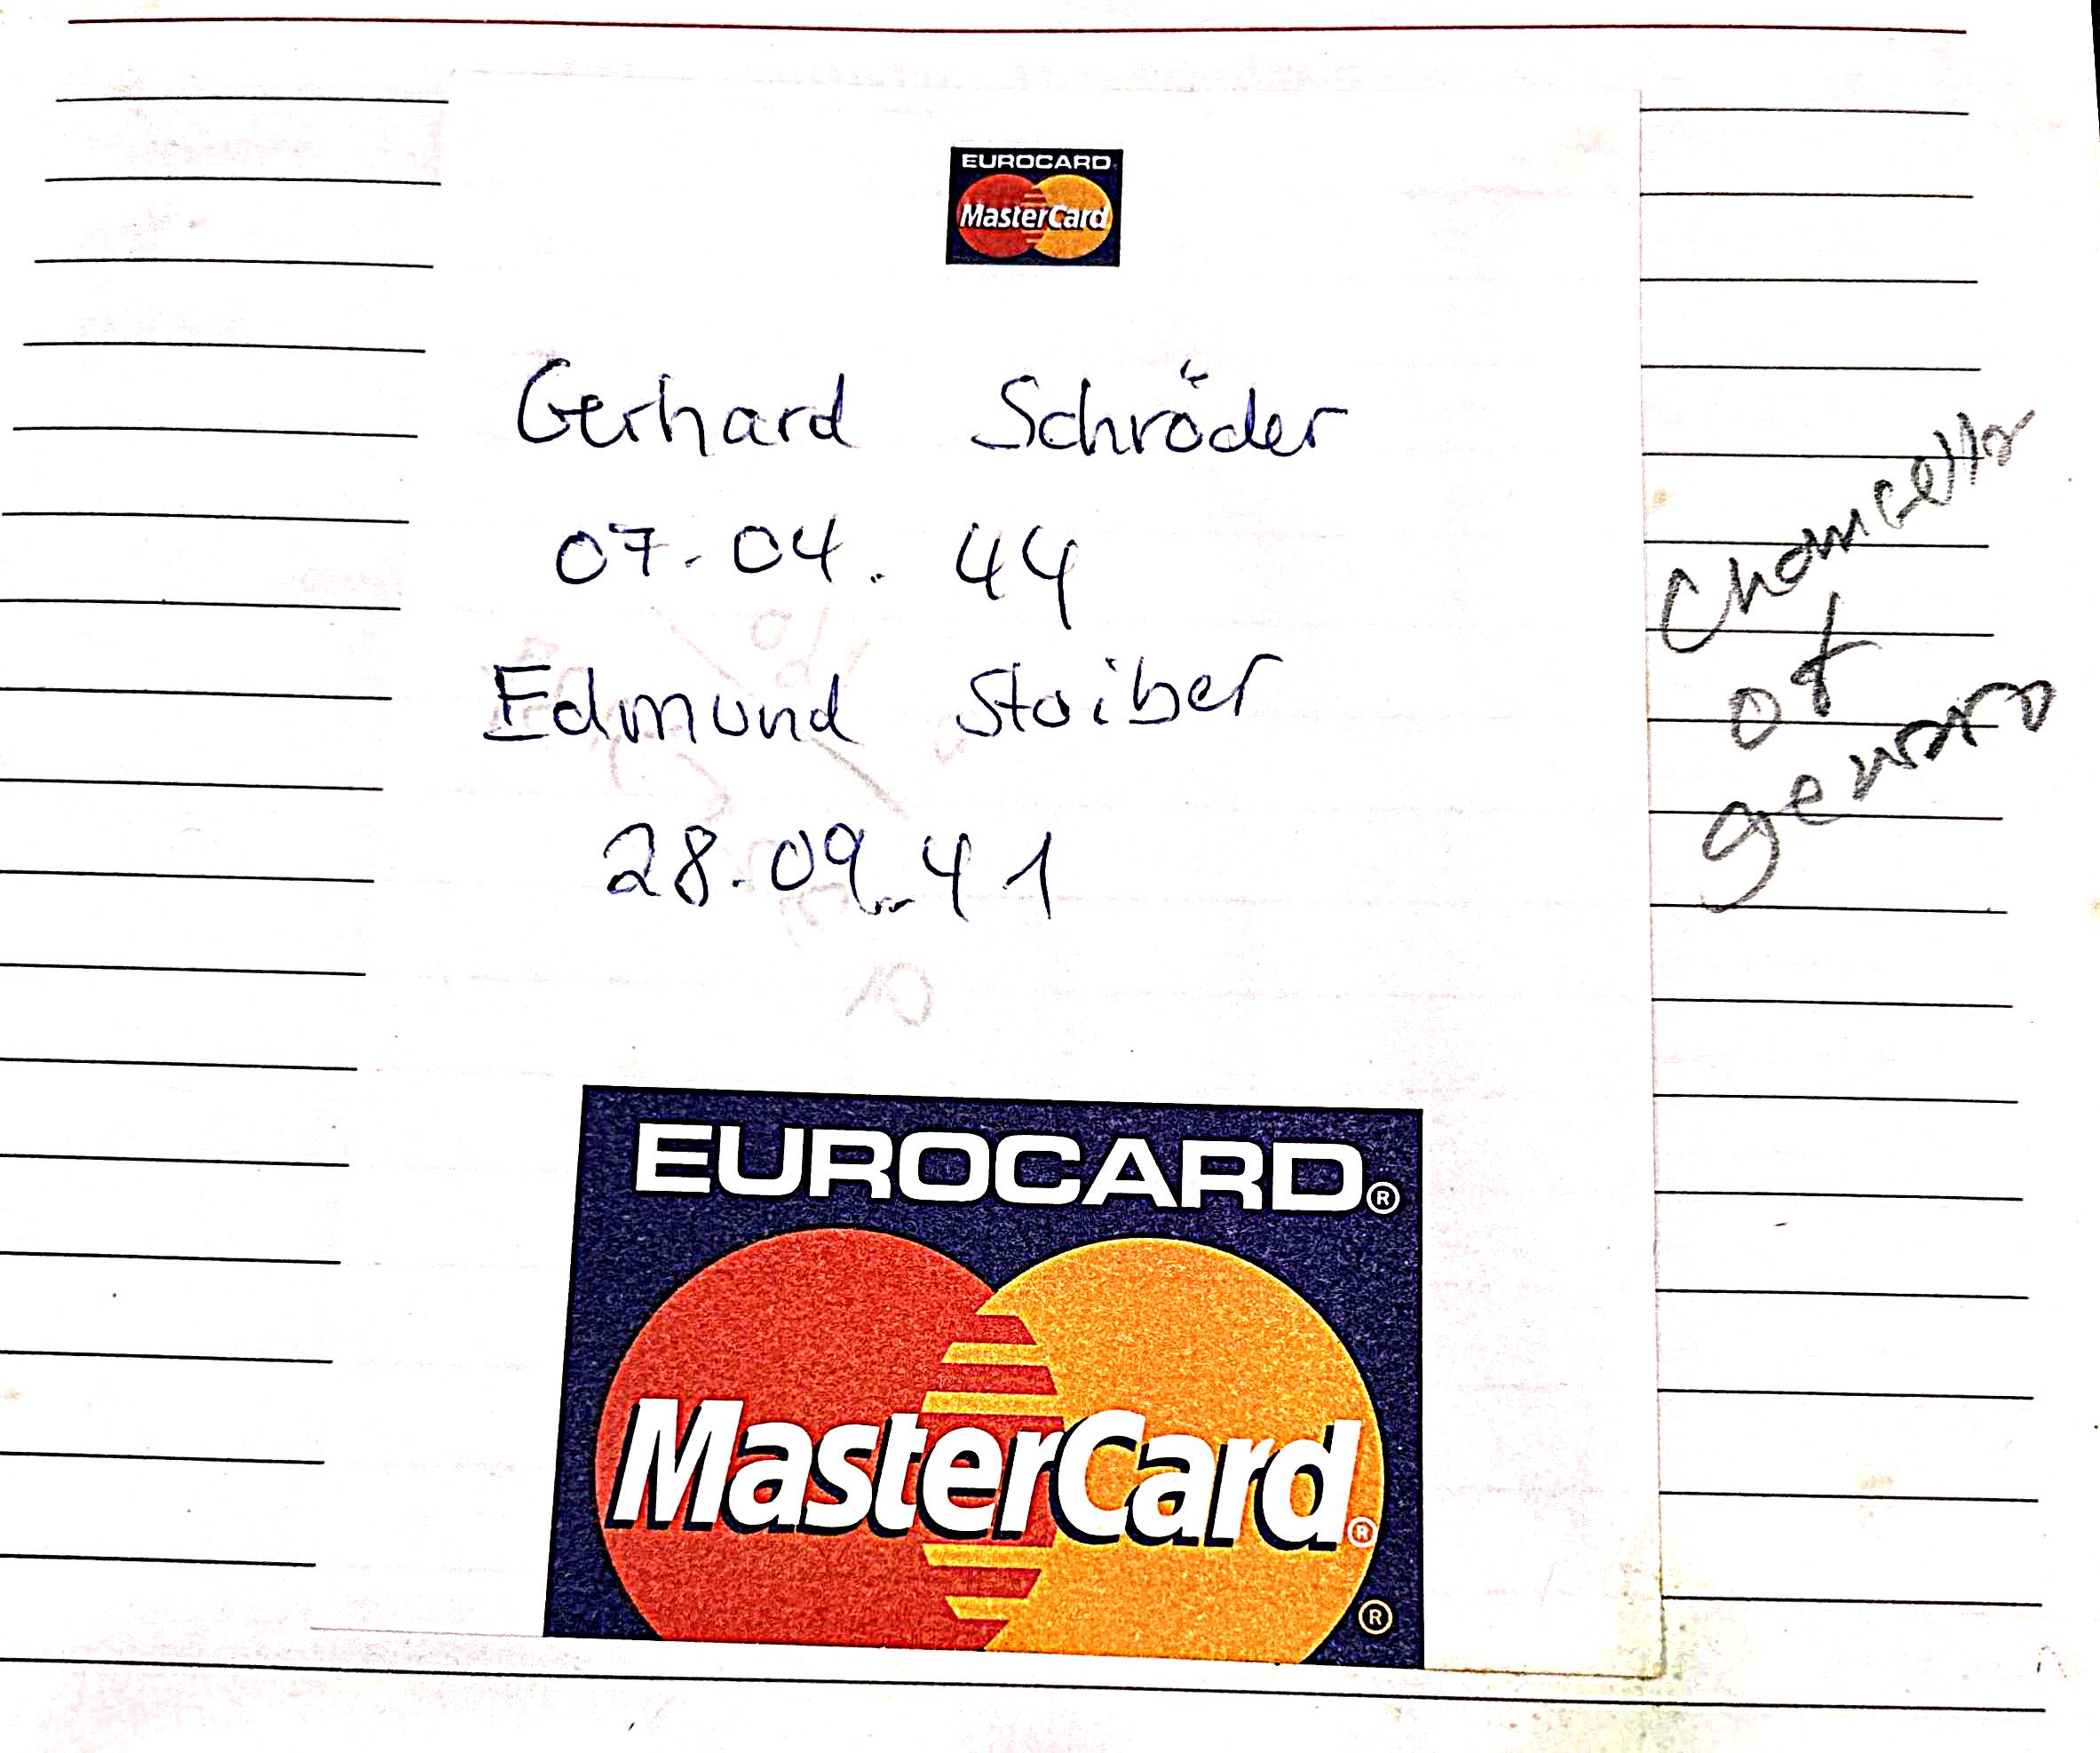 EUROCARD
MasterCard
Gerhard Schröder
07.04.44
Edmund Stoiber
28.09.41
Chancellor
of
EUROCARD®
MasterCard®
®